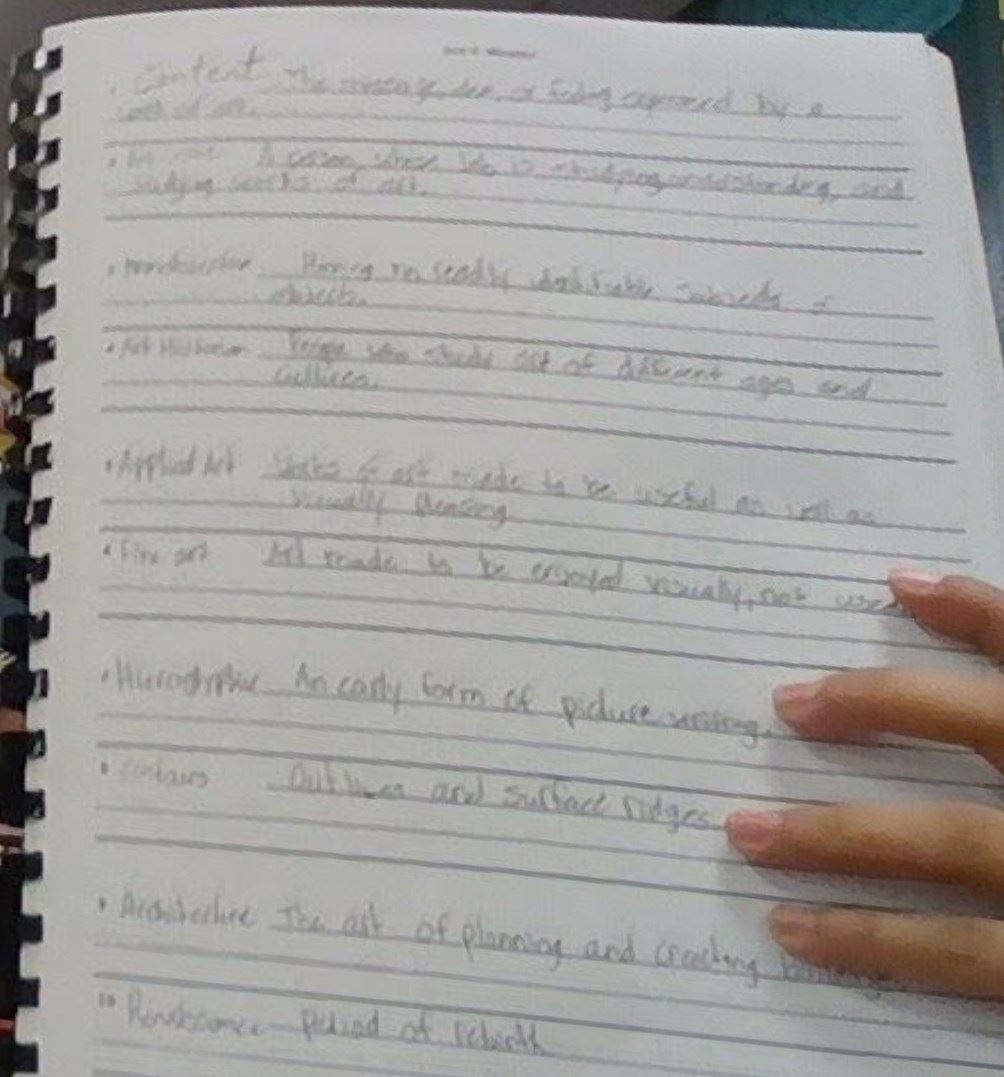 . Content The message, idea, or feeling expressed by a
work of art.
. A person whose job is studying, understanding, and
judging works of art.
. Nonobjective Having no readily identifiable subjects or
objects.
. Art Historian People who study art of different ages and
cultures.
. Applied Art Works of art made to be useful as well as
visually pleasing
. Fine art Art made to be enjoyed visually, not used
. An early form of picture writing.
. Contours Outlines and surface ridges
. Architecture The art of planning and creating buildings
10 Renaissance Period of rebirth